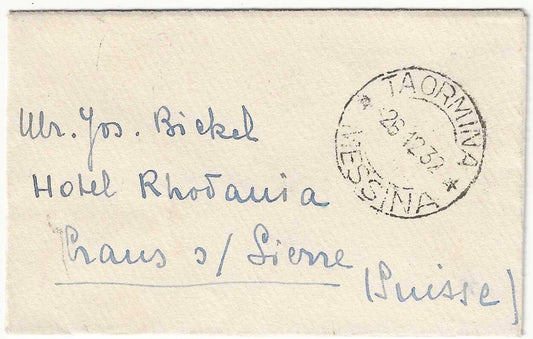 * TAORMINA *
26.12.32
MESSINA
Mr. Jos. Bickel
Hotel Rhodania
Crans s/ Sierre
(Suisse)